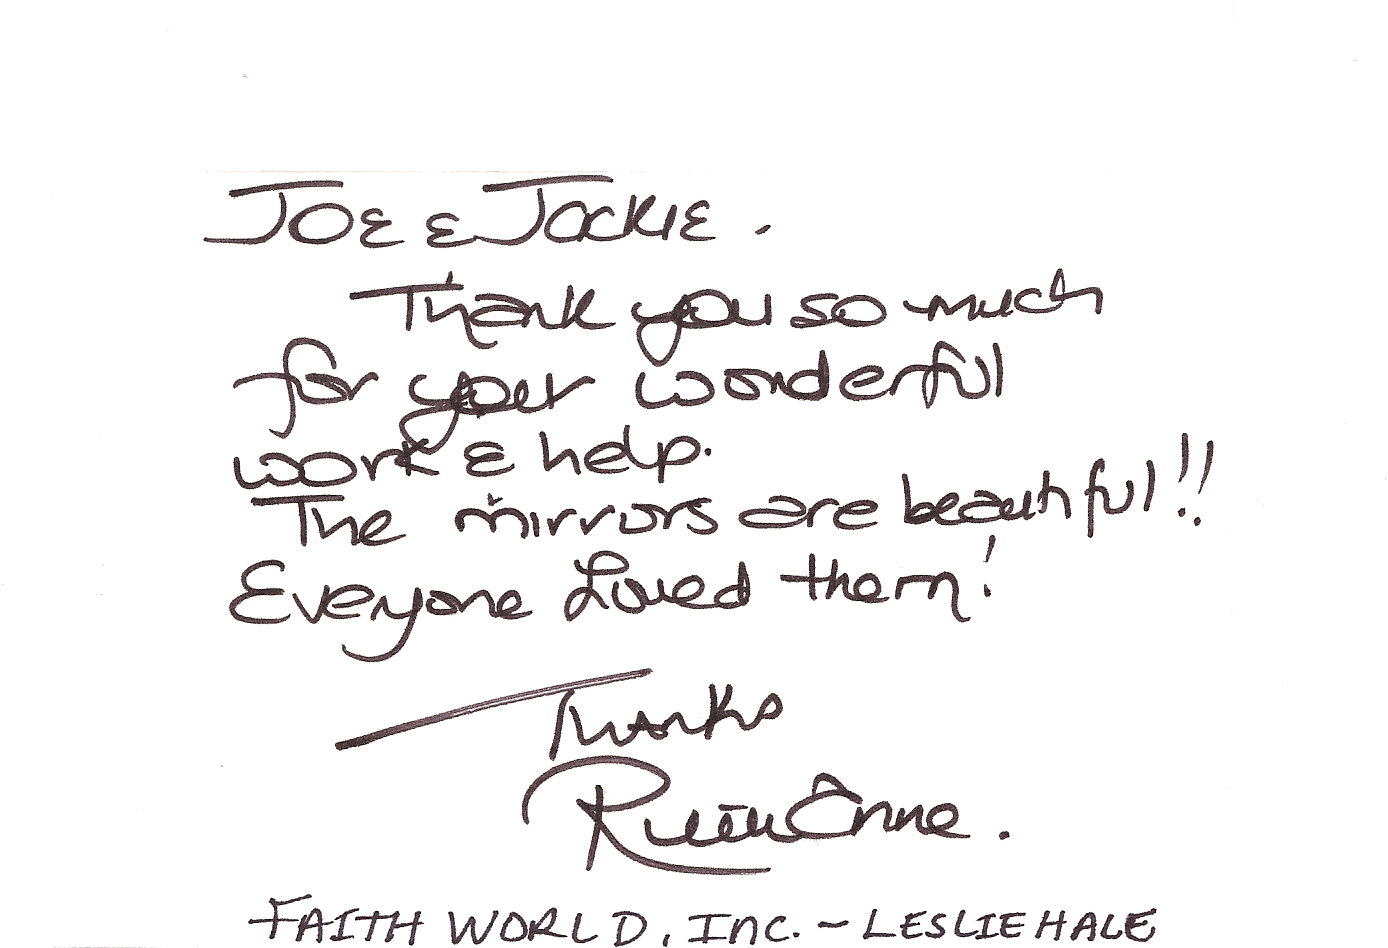 JOE & JACKIE.
Thank you so much
for your wonderful
work & help.
The mirrors are beautiful!!
Everyone Loved them!
Thanks
RuthAnne.
FAITH WORLD, INC. - LESLIE HALE